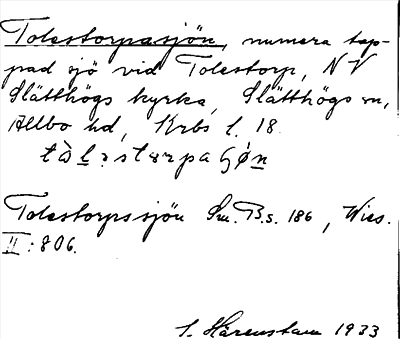 Tolestorpasjön, numera tap-
pad sjö vid Tolestorp, NV
Slätthögs kyrka, Slätthögs sn,
Allbo hd, Krbs l. 18.
Tolestorpssjön Sm. B.s. 186, Wies.
II: 806.
S. Härenstam 1933